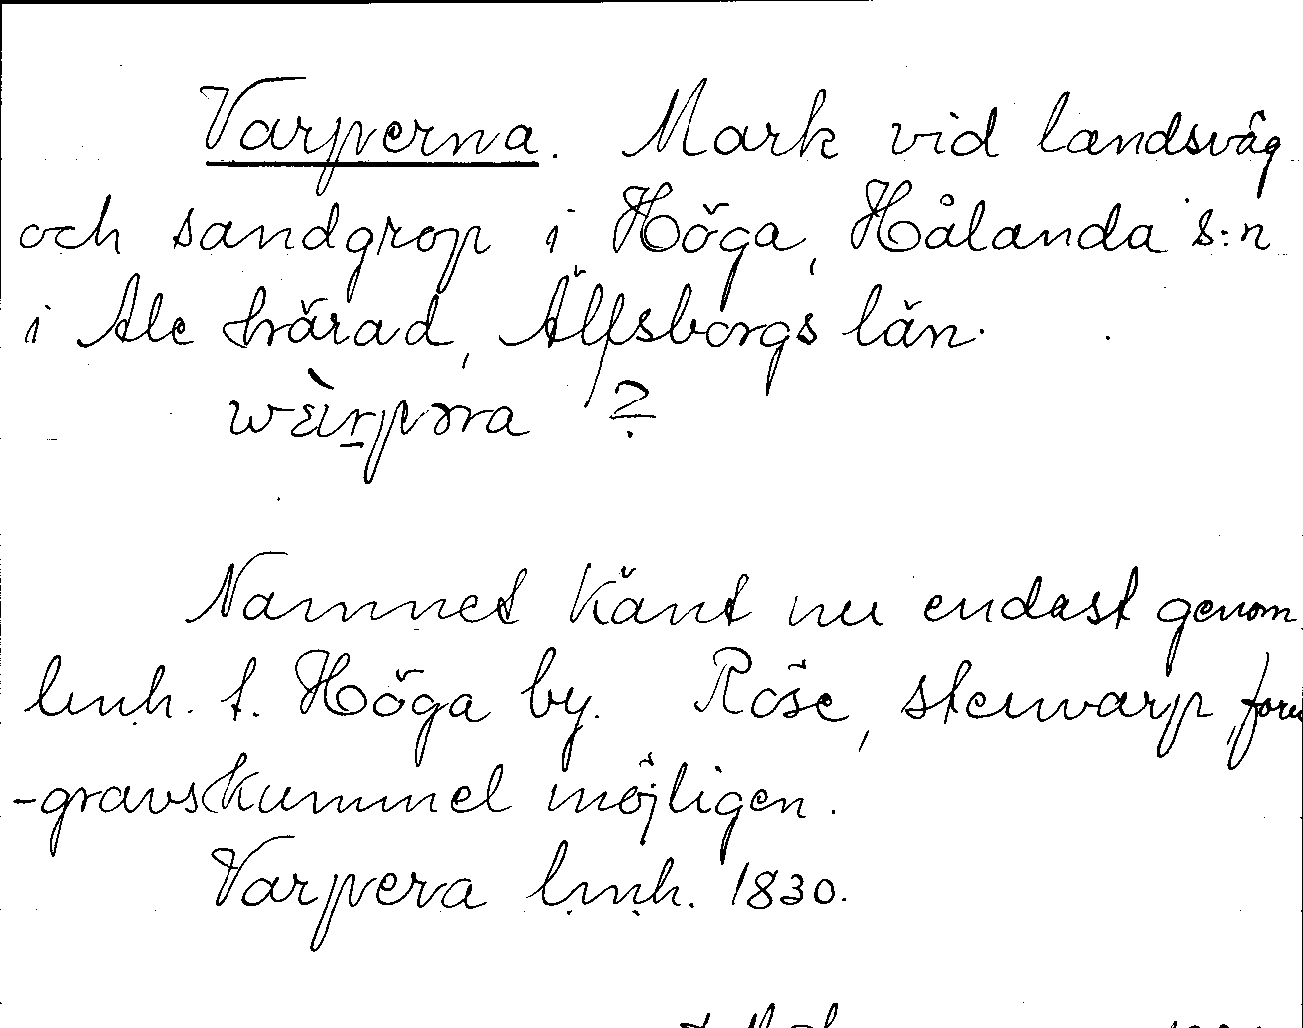 Varperna. Mark vid landsväg
och sandgrop i Höga, Hålanda s:n
i Ale härad, Älfsborgs län.
?
Namnet känt nu endast genom
lmh. t. Höga by. Röse, stenvarp, forn
-gravskummel möjligen.
Varpera lmh. 1830.